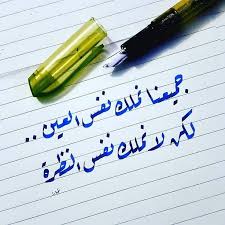 جميعنا نملك نفس العين ..
لكن لا نملك نفس النظرة